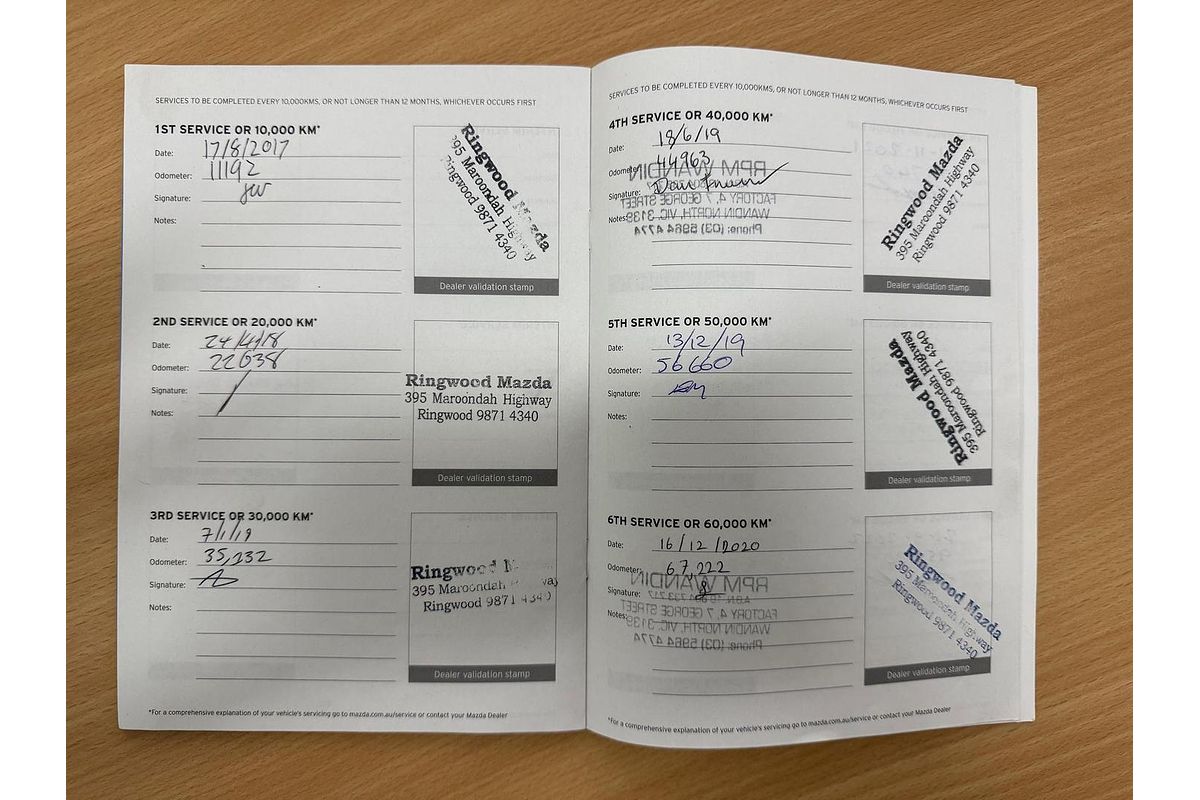 SERVICES TO BE COMPLETED EVERY 10,000KMS, OR NOT LONGER THAN 12 MONTHS, WHICHEVER OCCURS FIRST
1ST SERVICE OR 10,000 KM*
Date: 17/8/2017
Odometer: 11192
Signature:
Notes:
Ringwood Mazda
395 Maroondah Highway
Ringwood 9871 4340
Dealer validation stamp
2ND SERVICE OR 20,000 KM*
Date: 24/4/18
Odometer: 22638
Signature:
Notes:
Ringwood Mazda
395 Maroondah Highway
Ringwood 9871 4340
Dealer validation stamp
3RD SERVICE OR 30,000 KM*
Date: 7/1/19
Odometer: 35,232
Signature:
Notes:
Ringwood M
395 Maroondah Highway
Ringwood 9871 4340
Dealer validation stamp
*For a comprehensive explanation of your vehicle's servicing go to mazda.com.au/service or contact your Mazda Dealer
SERVICES TO BE COMPLETED EVERY 10,000KMS, OR NOT LONGER THAN 12 MONTHS, WHICHEVER OCCURS FIRST
4TH SERVICE OR 40,000 KM*
Date: 18/6/19
Odometer: 44963
Signature:
Notes:
RPM WANDIN
FACTORY 4, 7 GEORGE STREET
WANDIN NORTH, VIC. 3139
Phone: (03) 5964 4774
Ringwood Mazda
395 Maroondah Highway
Ringwood 9871 4340
Dealer validation stamp
5TH SERVICE OR 50,000 KM*
Date: 13/12/19
Odometer: 56660
Signature:
Notes:
Ringwood Mazda
395 Maroondah Highway
Ringwood 9871 4340
Dealer validation stamp
6TH SERVICE OR 60,000 KM*
Date: 16/12/2020
Odometer: 67,222
Signature:
Notes:
RPM WANDIN
FACTORY 4, 7 GEORGE STREET
WANDIN NORTH, VIC. 3139
Phone: (03) 5964 4774
Ringwood Mazda
395 Maroondah Highway
Ringwood 9871 4340
Dealer validation stamp
*For a comprehensive explanation of your vehicle's servicing go to mazda.com.au/service or contact your Mazda Dealer